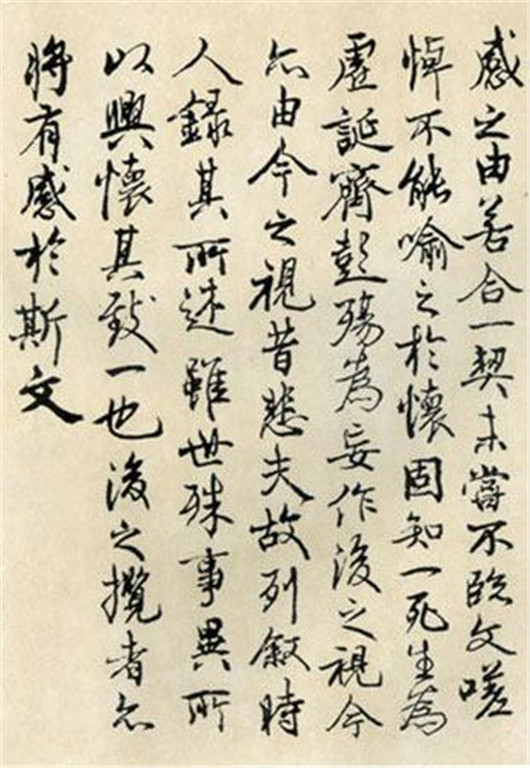 感之由若合一契未嘗不臨文嗟
悼不能喻之於懷固知一死生為
虛誕齊彭殤為妄作後之視今
亦由今之視昔悲夫故列敘時
人錄其所述雖世殊事異所
以興懷其致一也後之攬者亦
將有感於斯文